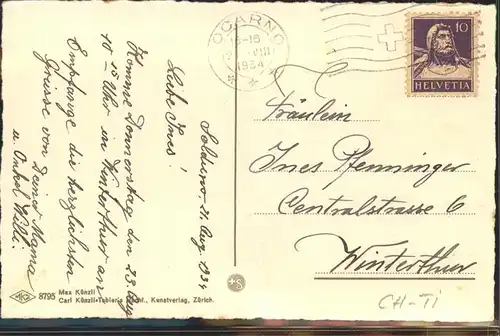 Solduno - 21. Aug. 1934
Liebe Ines!
Komme Donnerstag den 23. Aug.
10.25 Uhr in Winterthur an
Empfange die herzlichsten
Grüsse von Deiner Mama
u. Onkel Willi.
OCARNO
1934
10
HELVETIA
Fräulein
Ines Pfenninger
Centralstrasse 6
Winterthur
CH-TI
MKZ
8795
Max Künzli
Carl Künzli-Tobler's Nachf., Kunstverlag, Zürich.